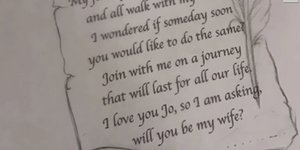 and all walk with my
I wondered if someday soon
you would like to do the same?
Join with me on a journey
that will last for all our life,
I love you Jo, so I am asking,
will you be my wife?